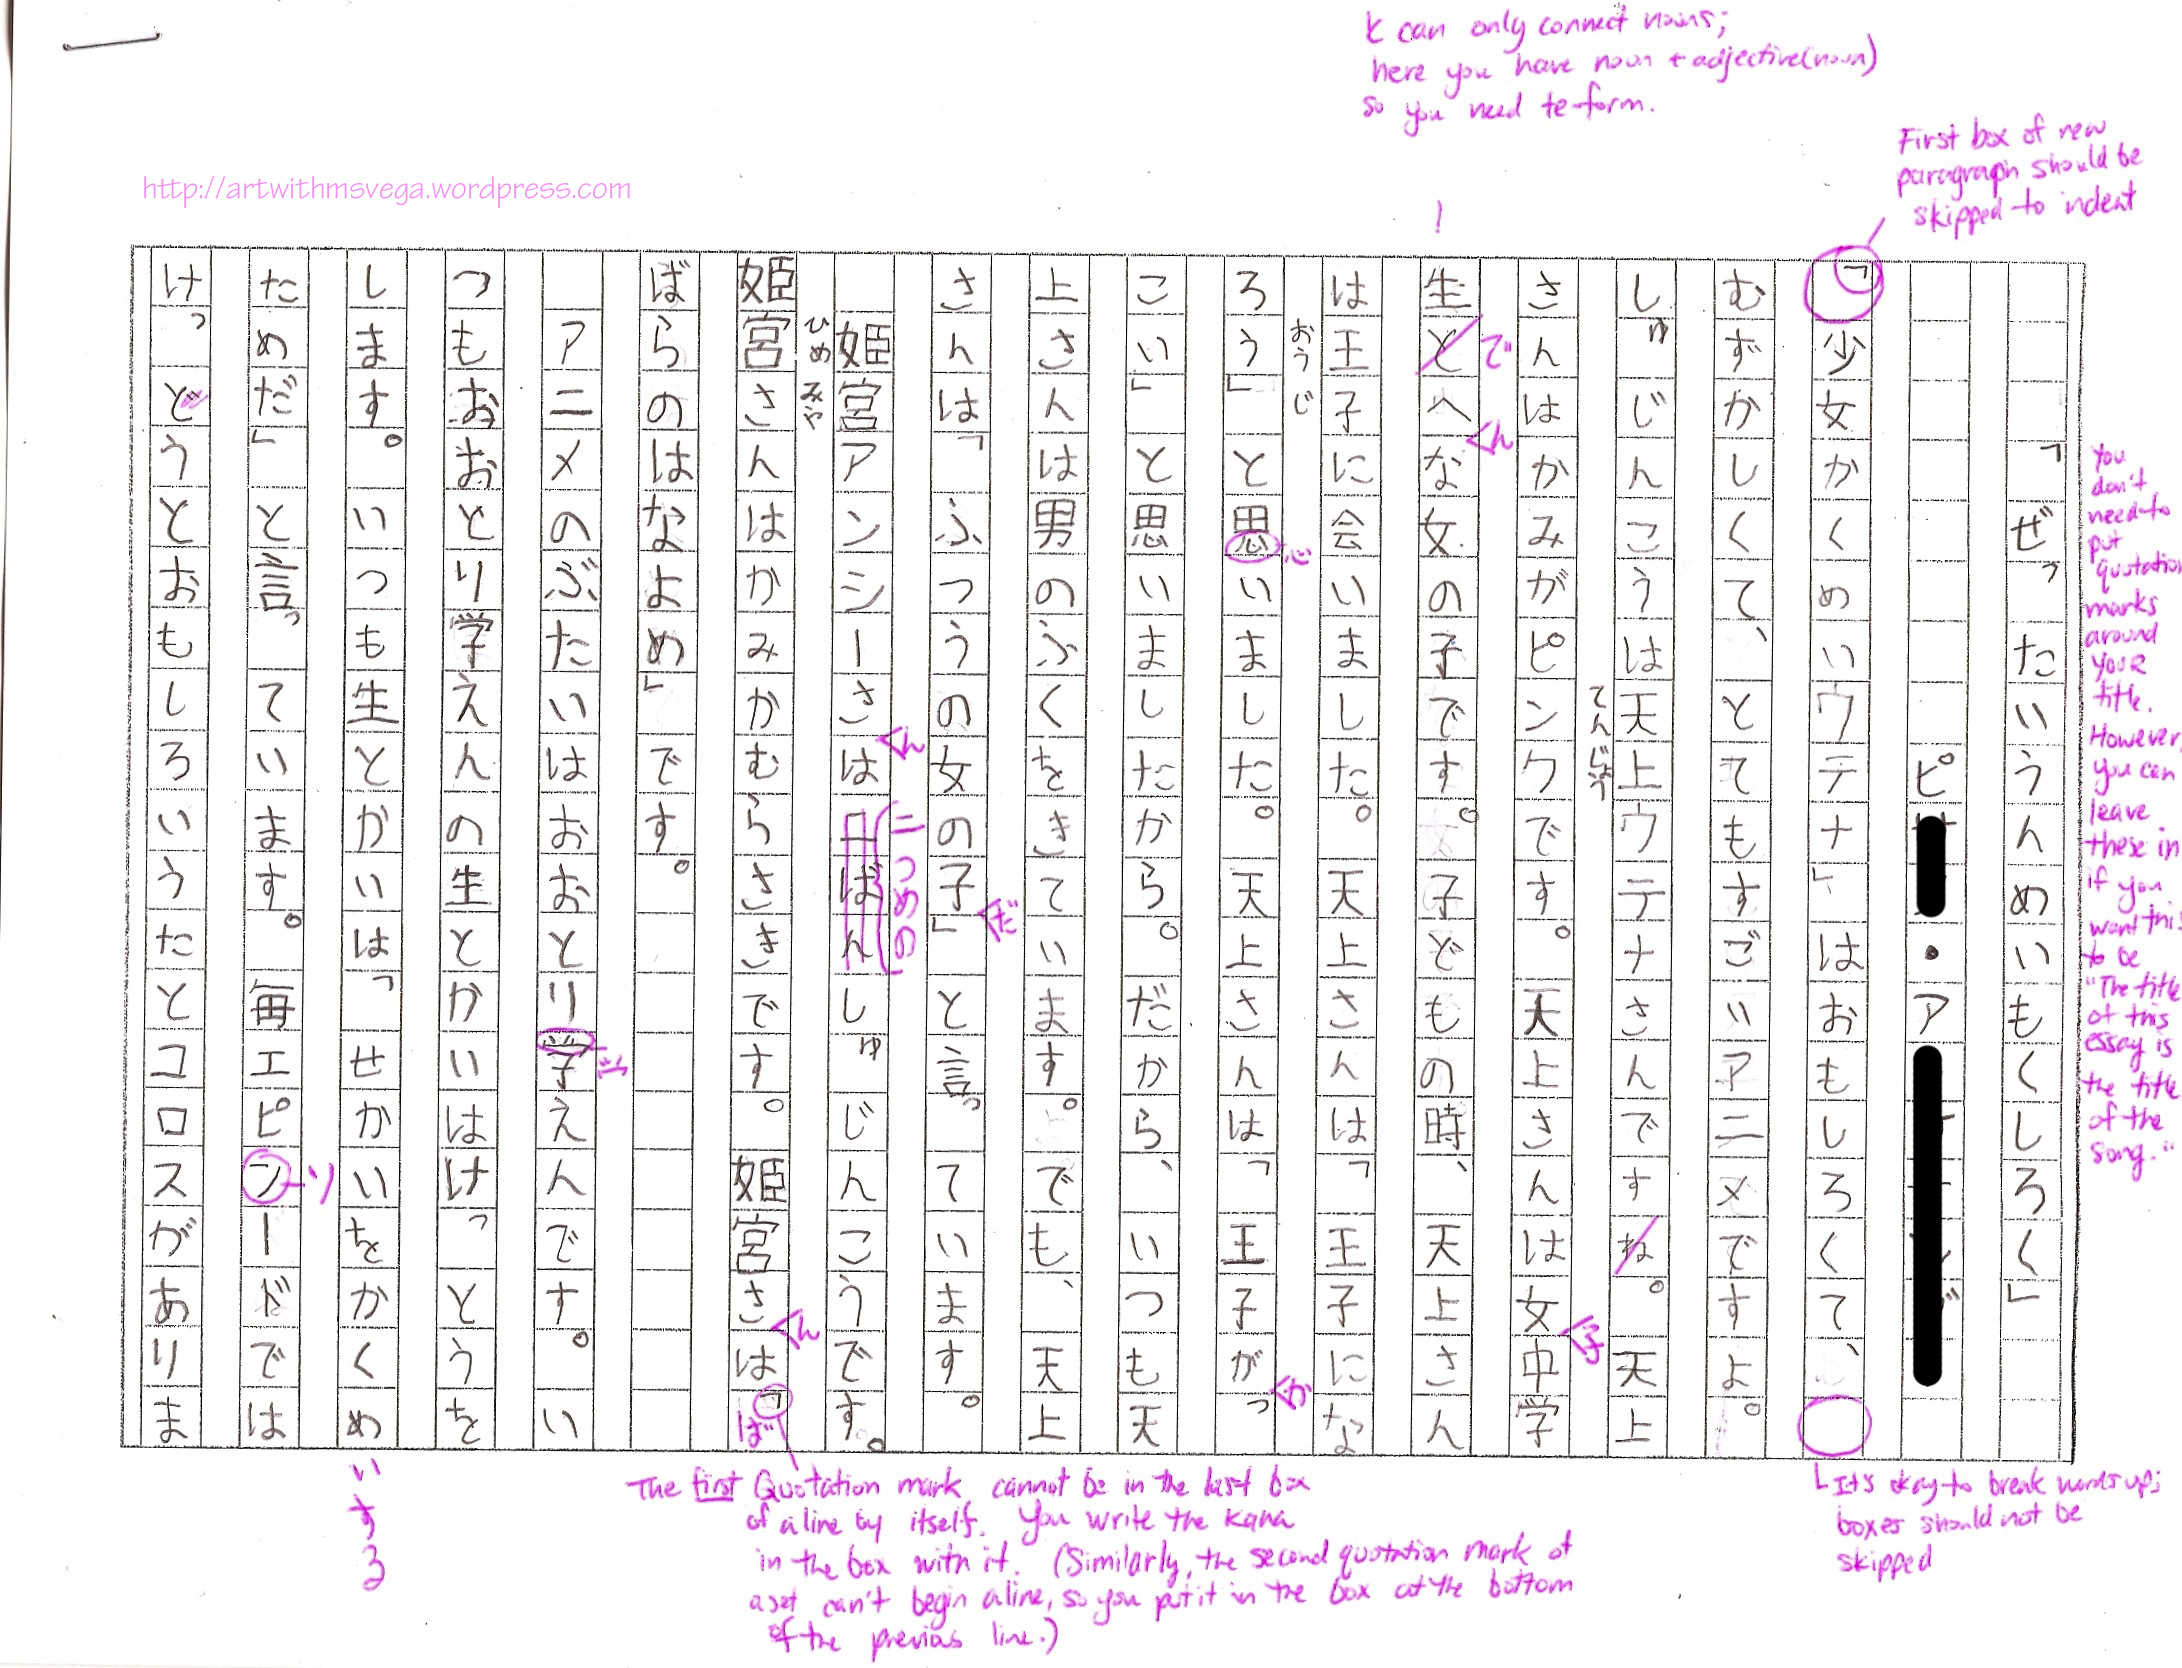 K can only connect nouns;
here you have noun + adjective(noun)
so you need te-form.
First box of new
paragraph should be
skipped to indent
http://artwithmsvega.wordpress.com
!
「ぜったいうんめいもくしろく」
You
don't
need to
put
quotation
marks
around
your
title.
However,
you can
leave
these in
if you
want this
to be
"The title
of this
essay is
the title
of the
song."
ピ・ア
「少女かくめいウテナ」はおもしろくて、
むずかしくて、とてもすごいアニメですよ。
しゅじんこうは天上ウテナさんですね。天上
てんじょう
さんはかみがピンクです。天上さんは女中学
子
生とへな女の子です。子どもの時、天上さん
で
ん
は王子に会いました。天上さんは「王子にな
おうじ
ろう」と思いました。天上さんは「王子がっ
心
か
こい」と思いましたから。だから、いつも天
上さんは男のふくをきています。でも、天上
さんは「ふつうの女の子」と言っています。
だ
姫宮アンシーさは日ばんしゅじんこうです。
ひめみや
ん
二つめの
姫宮さんはかみかむらさきです。姫宮さは「
ん
ば
ばらのはなよめ」です。
アニメのぶたいはおおとり学えんです。い
つもおおとり学えんの生とかいはけっとうを
します。いつも生とかいは「せかいをかくめ
いする
ためだ」と言っています。毎エピンードでは
ソ
けっとうとおもしろいうたとコロスがありま
The first Quotation mark cannot be in the last box
of a line by itself. You write the kana
in the box with it. (Similarly, the second quotation mark of
a set can't begin a line, so you put it in the box at the bottom
of the previous line.)
It's okay to break words up;
boxes should not be
skipped